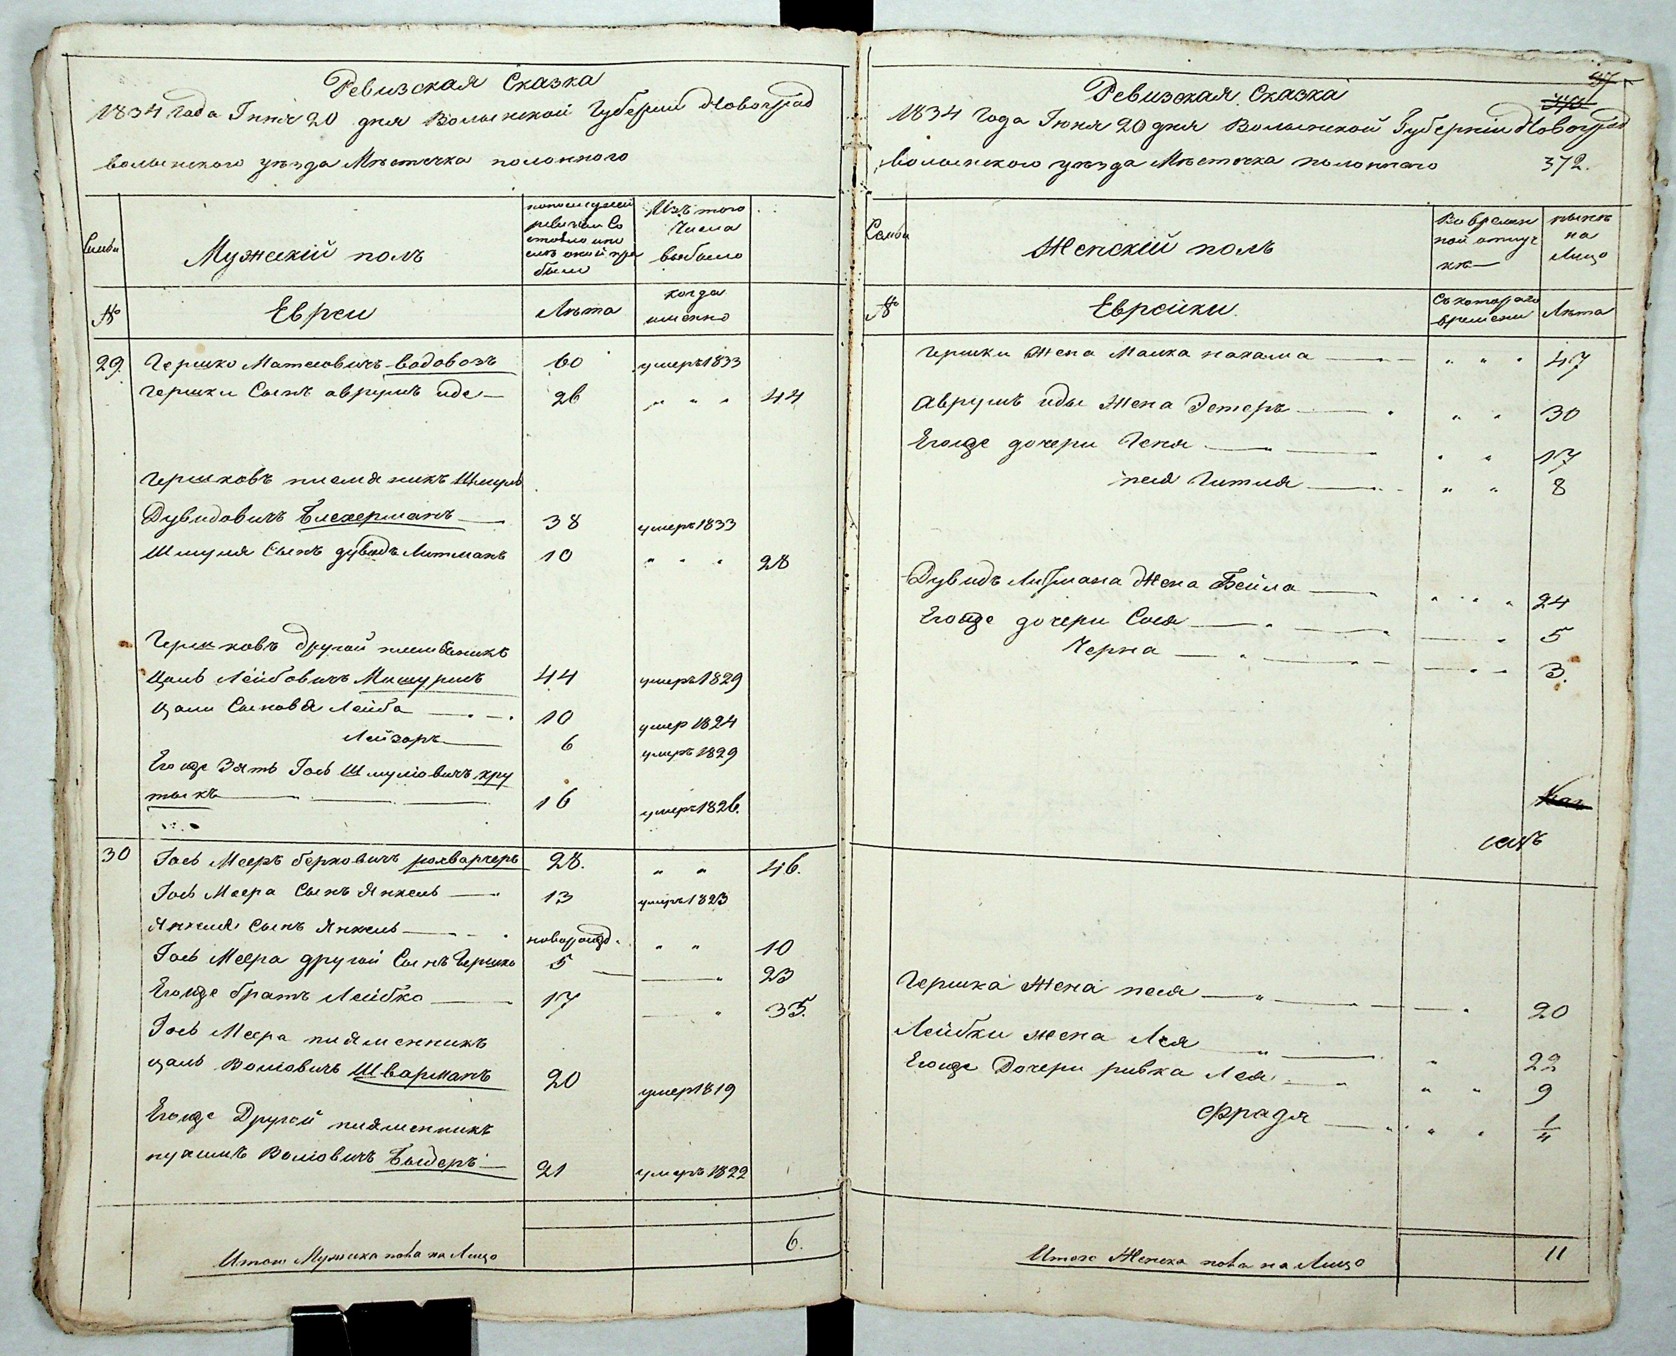 Ревизская Сказка
1834 года Іюня 20 дня Волынской Губерніи Новоград
волынского уезда Мѣстечка полонного
Семьи
Мужескій полъ
по последней
ревизіи Со
стояло или
послѣ оной при
были
Изъ того
Числа
выбыло
№
Евреи
Лѣта
когда
именно
29. Гершко Матесовичъ водовозъ 60 умеръ 1833
Гершки Сынъ аврумъ иде — 26 " " " 44
Гершковъ племяникъ Шмуль
Дувидовичъ Блехерманъ — 38 умеръ 1833
Шмуля Сынъ дувидъ Литманъ 10 " " " 28
Гершковъ другой племяникъ
Цаль Лейбовичъ Мишуринъ 44 умеръ 1829
Цали Сыновя Лейба — 10 умер 1824
Лейзоръ — 6 умеръ 1829
Егожде Зять Іось Шмуліовичъ кру
тыкъ — 16 умеръ 1826.
30 Іось Мееръ берковичъ розварчеръ 28. " " 46.
Іось Меера Сынъ Янкель — 13 умеръ 1823
Янкеля Сынъ Янкель — новорожд. " " 10
Іось Меера другой Сынъ Гершко 5 — " 23
Егожде братъ Лейбко — 17 — " 35.
Іось Меера пляменникъ
цаль Воліовичъ Шварманъ 20 умер 1819
Егожде Другой пляменникъ
Воліовичъ 21 умеръ 1822
Итого Мужеска пола на Лицо 6.
47
372.
Ревизская Сказка
1834 Года Іюня 20 дня Волынской Губерніи Новоград
волынского уезда Мѣстечка полонного
Семьи
Женскій полъ
Во времян
ной отлуч
кѣ —
нынѣ
на
Лицо
№
Еврейки.
Съ котораго
времени
Лѣта
Гершки Жена Малка нахама — " " " 47
Аврумъ иды Жена Эстеръ — " " 30
Егожде дочери Геня — " " 17
песя Гитля — " " 8
Дувидъ Литмана Жена Бейла — " " " 24
Егожде дочери Сося — " 5
Черна — " 3.
Гершка Жена песя — " 20
Лейбки жена Лея — " 22
Егожде Дочери ривка Лея — " " 9
Фрадя — " " 1/4
Итого Женска пола на Лицо 11